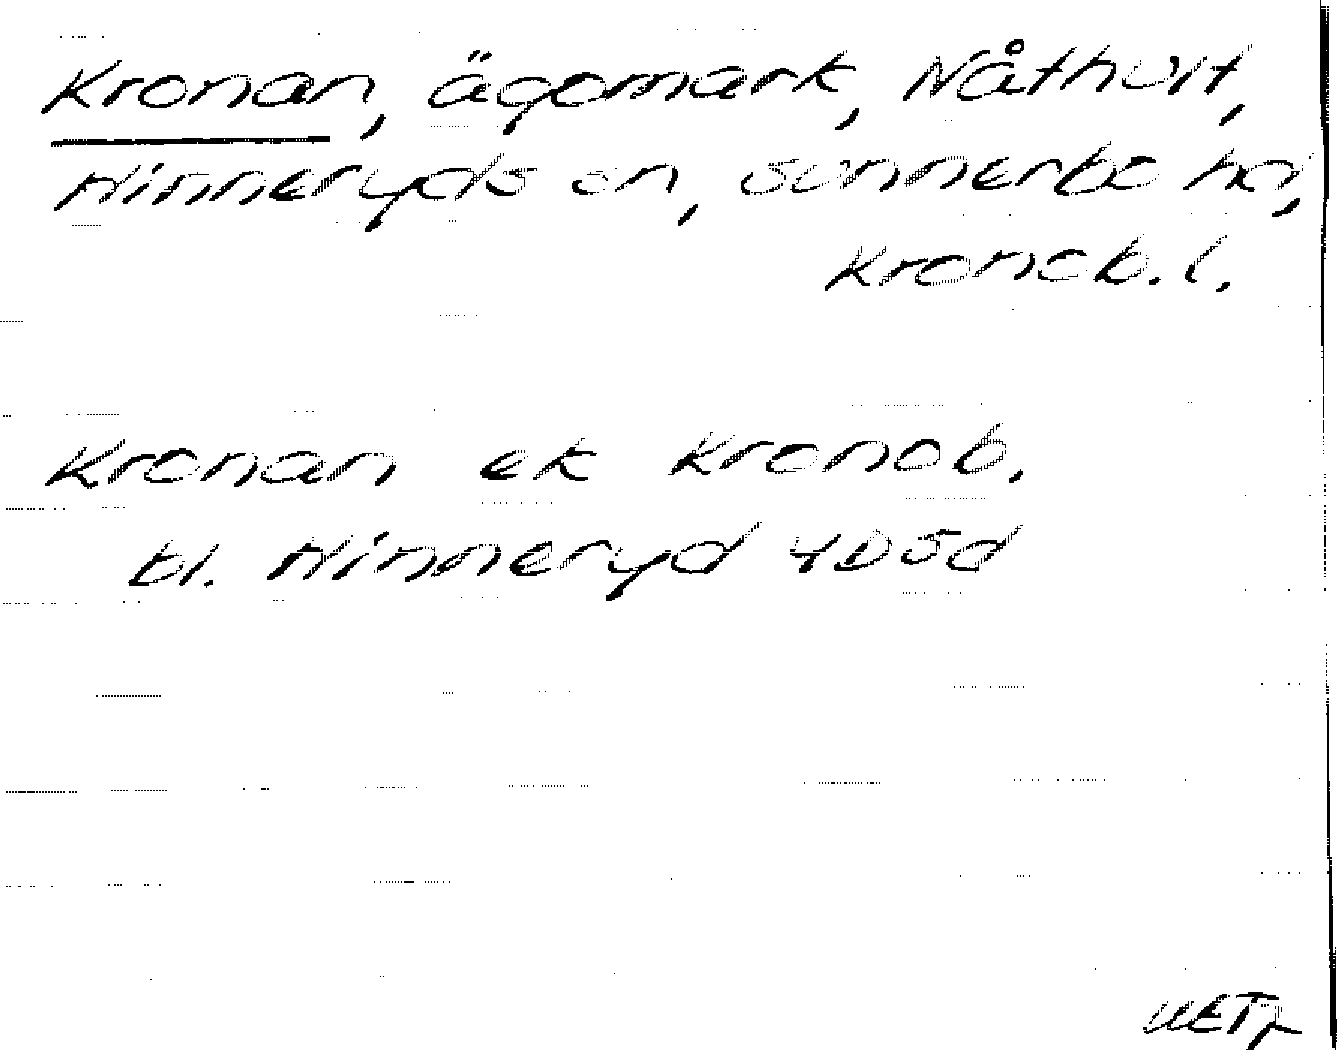 Kronan, ägomark, Nåthult,
Hinneryds sn, Sunnerbo hd,
Kronob. l.
Kronan ek Kronob.
bl. Hinneryd 4D5d